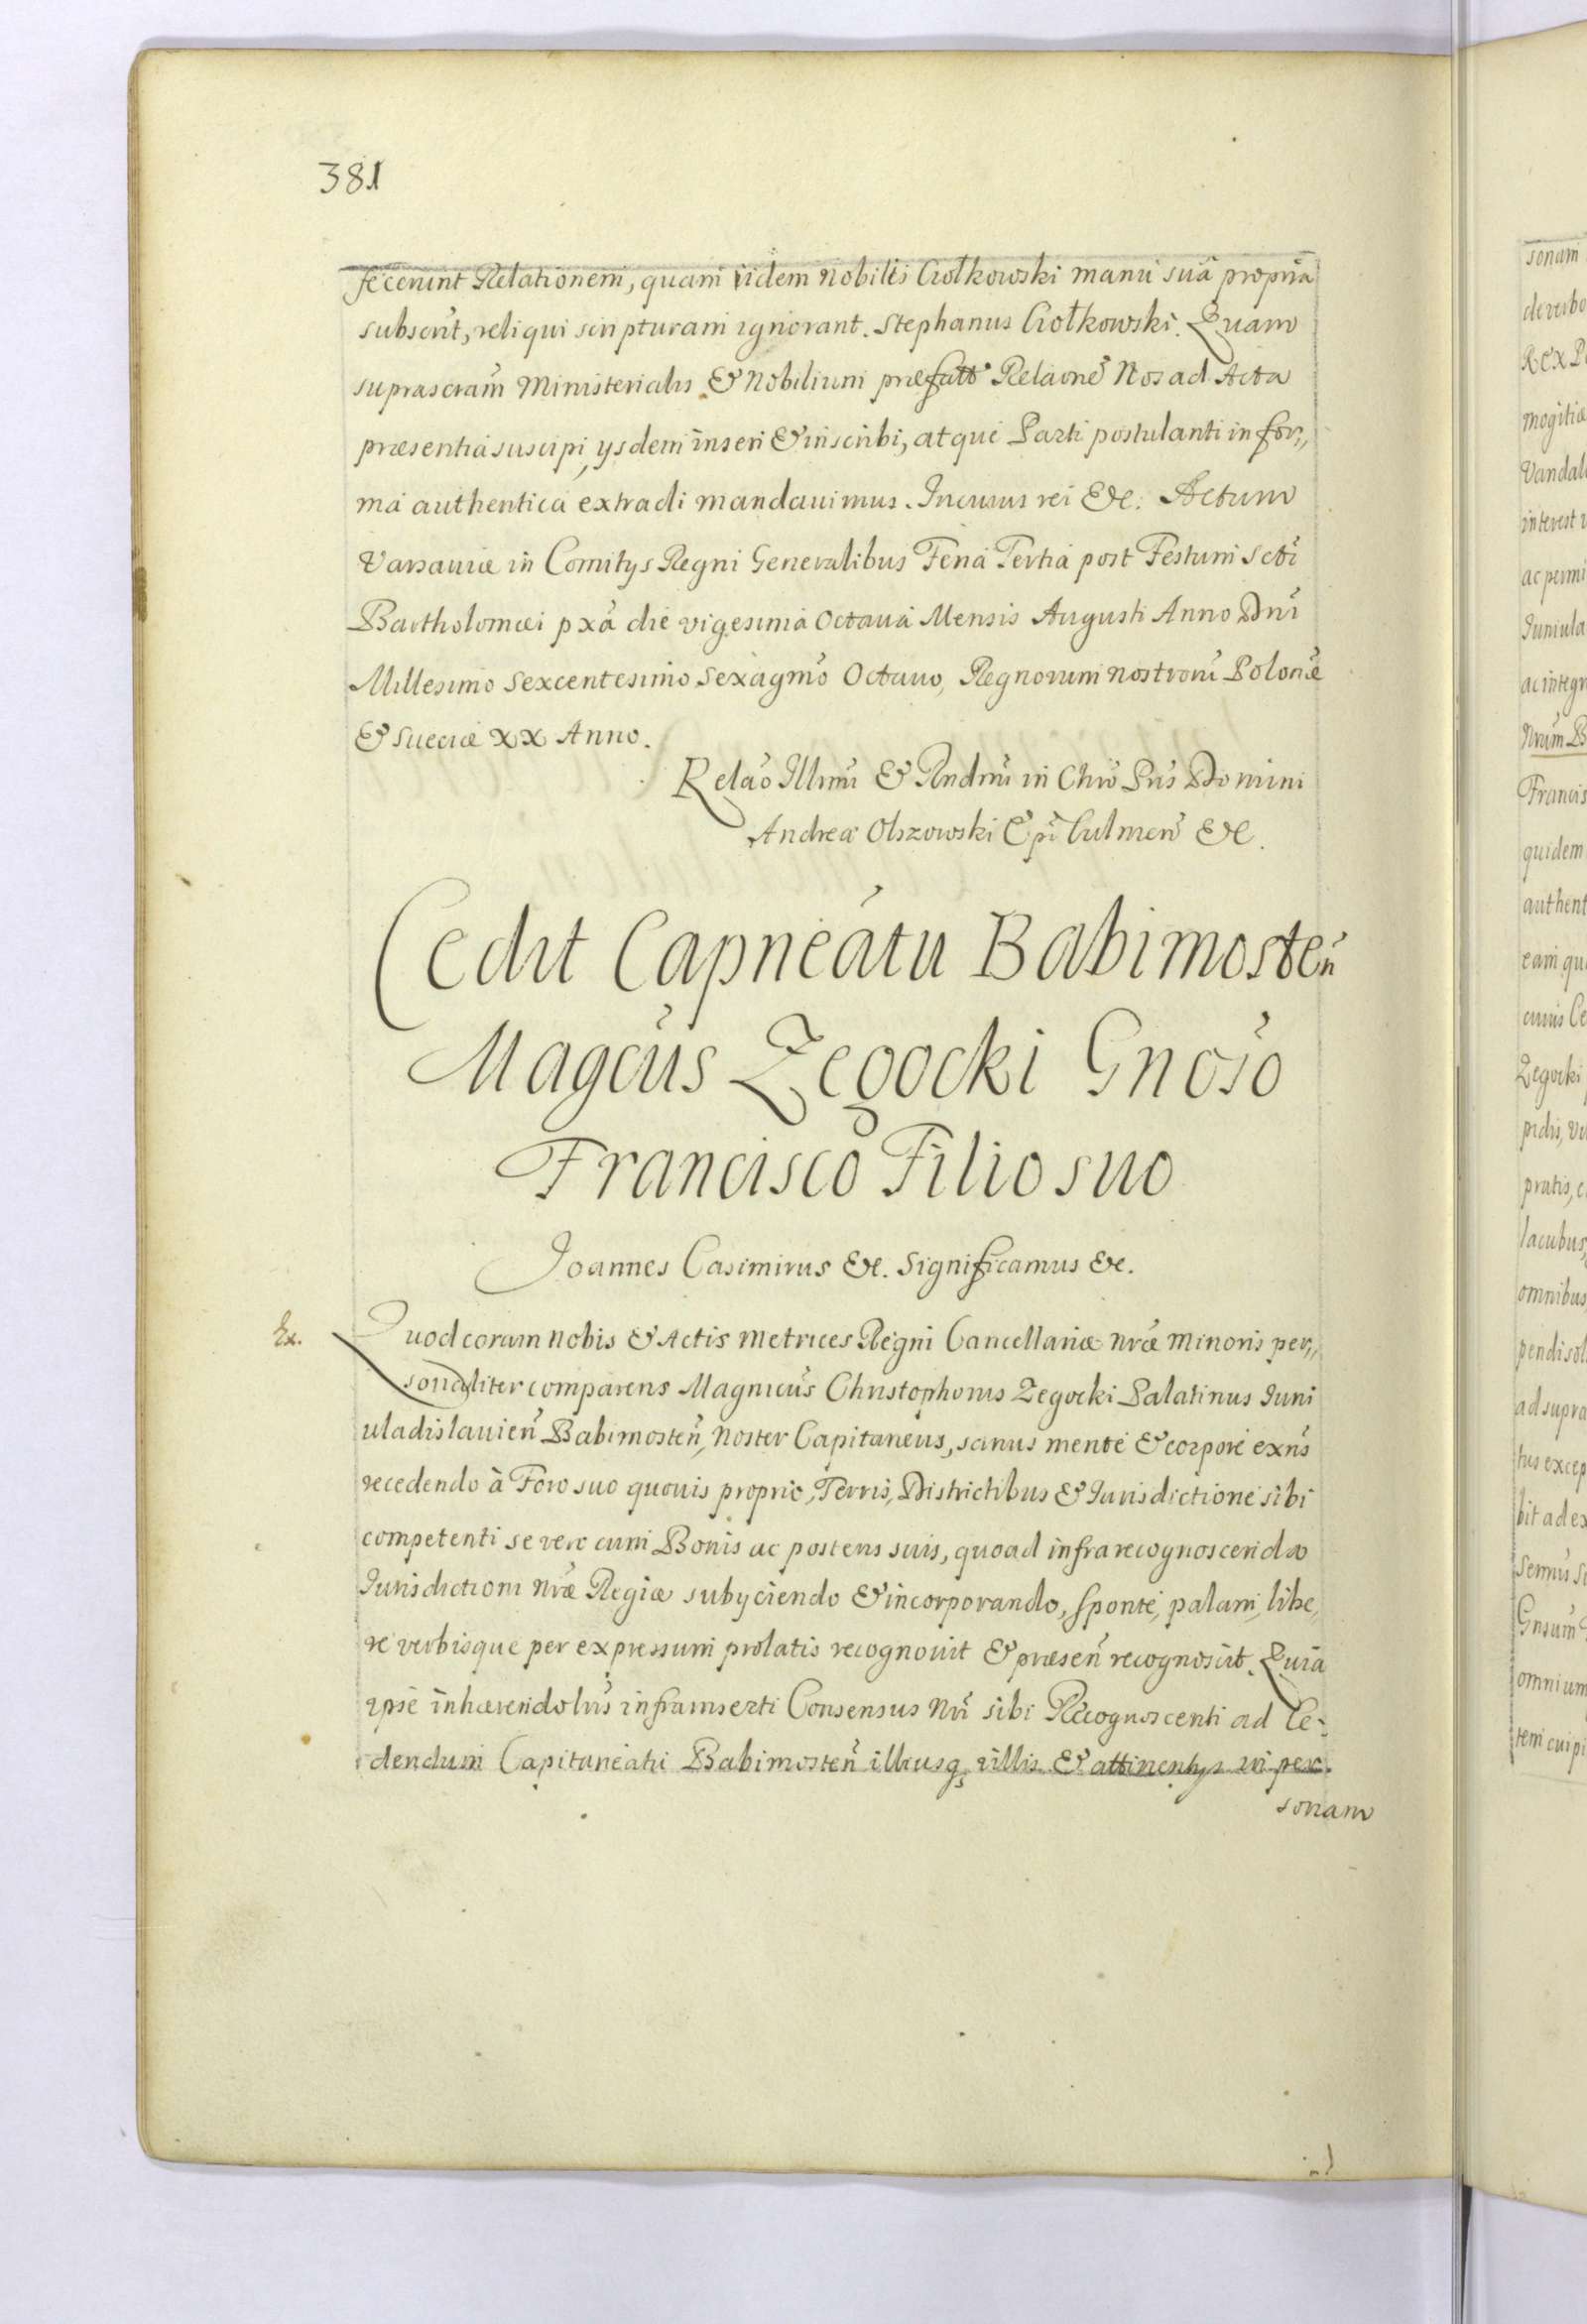 381
fecerunt Relationem, quam iidem nobiles Ciołkowski manu suâ propria
subscrt, reliqui scripturam ignorant. Stephanus Ciołkowski. Quam
suprascram Ministerialis & Nobilium præfatt Relaone Nos ad Acta
præsentia suscipi, ysdem inseri & inscribi, atque Parti postulanti in for,,
ma authentica extradi mandauimus. In cuius rei &c. Actum
Varsauiæ in Comitys Regni Generalibus Feria Tertia post Festum Scti
Bartholomæi pxa die vigesima Octaua Mensis Augusti Anno Dni
Millesimo Sexcentesimo Sexagmo Octauo, Regnorum nostroru Poloniæ
& Sueciæ XX Anno.
Relao Illmi & Rndmi in Chro Pris Domini
Andreæ Olszowski Epi Culmen &c.
Cedit Capneatu Babimosten
Magcus Zegocki Gnoso
Francisco Filio suo
Joannes Casimirus &c. Significamus &c.
Ex.
Quod coram nobis & Actis Metrices Regni Cancellariæ nræ Minoris per,,
sonaliter comparens Magnicus Christophorus Zegocki Palatinus Iuni
uladislauien Babimosten, Noster Capitaneus, sanus mente & corpore exns
recedendo à Foro suo quouis proprio, Terris, Districtibus & Iurisdictione sibi
competenti se vero cum Bonis ac posteris suis, quoad infrarecognoscenda
Iurisdictioni nræ Regiæ subyciendo & incorporando, sponte, palam, libe,
re verbisque per expressum prolatis recognouit & præsen recognoscit. Quia
ipse inhærendo lris infrainserti Consensus Nri sibi Recognoscenti ad Ce-
dendum Capitaneatu Babimosten illiusq, villis & attinentys in per-
sonam
sonam
de verbo
Rex P
mogitiæ
Vandal
interest
ac permi
Iuniula
ac integr
Nrum B
Francis
quidem
authent
eam qu
cuius Ce
Zegocki
pidis, vi
pratis, c
lacubus,
omnibus
pendi sol
ad supra
tus excep
bit ad ex
Semus si
Gnsum
omnium
tem cuipi